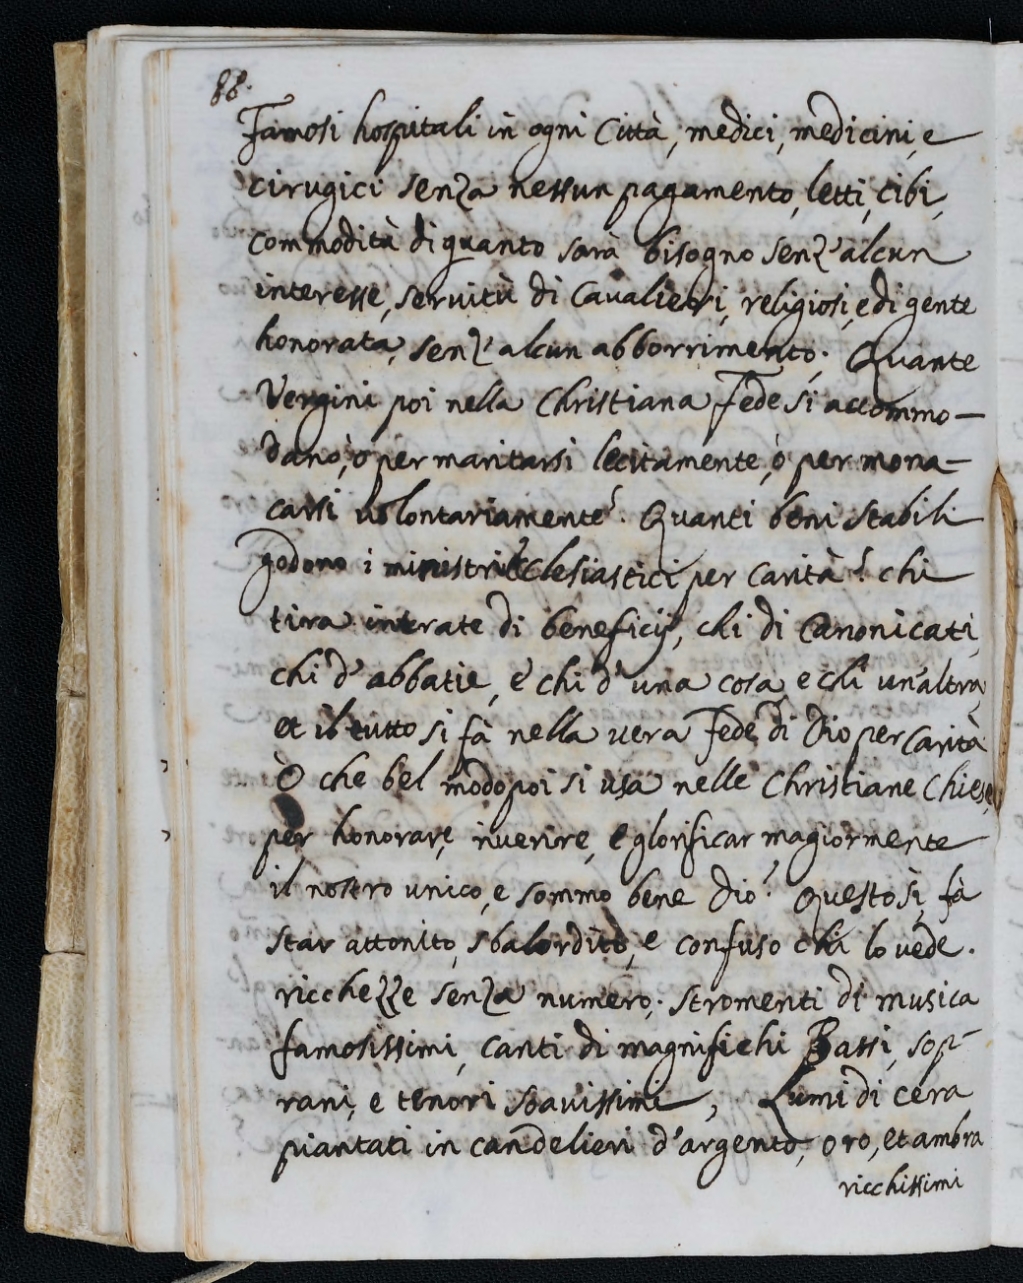 88.
Famosi hospitali in ogni Città, medici, medicini, e
cirugici senza nessun pagamento, letti, cibi,
commodità di quanto sarà bisogno senz'alcun
interesse, servitù di Cavalieri, religiosi, e di gente
honorata, senz'alcun abborrimento. Quante
Vergini poi nella Christiana Fede si accommo-
dano, ò per maritarsi lecitamente, ò per mona-
carsi volontariamente? Quanti beni stabili
godono i ministri Ecclesiastici per carità? chi
tira intrate di beneficij, chi di Canonicati,
chi d'abbatie, e chi d'una cosa, e chi un'altra,
et il tutto si fà nella vera Fede di Dio per Carità
Ò che bel modo poi si usa nelle Christiane Chiese,
per honorare, riverire, e glorificar magiormente
il nostro unico, e sommo bene Dio? Questo sì, fà
star attonito, sbalordito, e confuso chi lo vede.
ricchezze senza numero; stromenti di musica
famosissimi, canti di magnifichi Bassi, sop-
rani, e tenori soavissimi, Lumi di cera
piantati in candelieri d'argento, oro, et ambra
ricchissimi